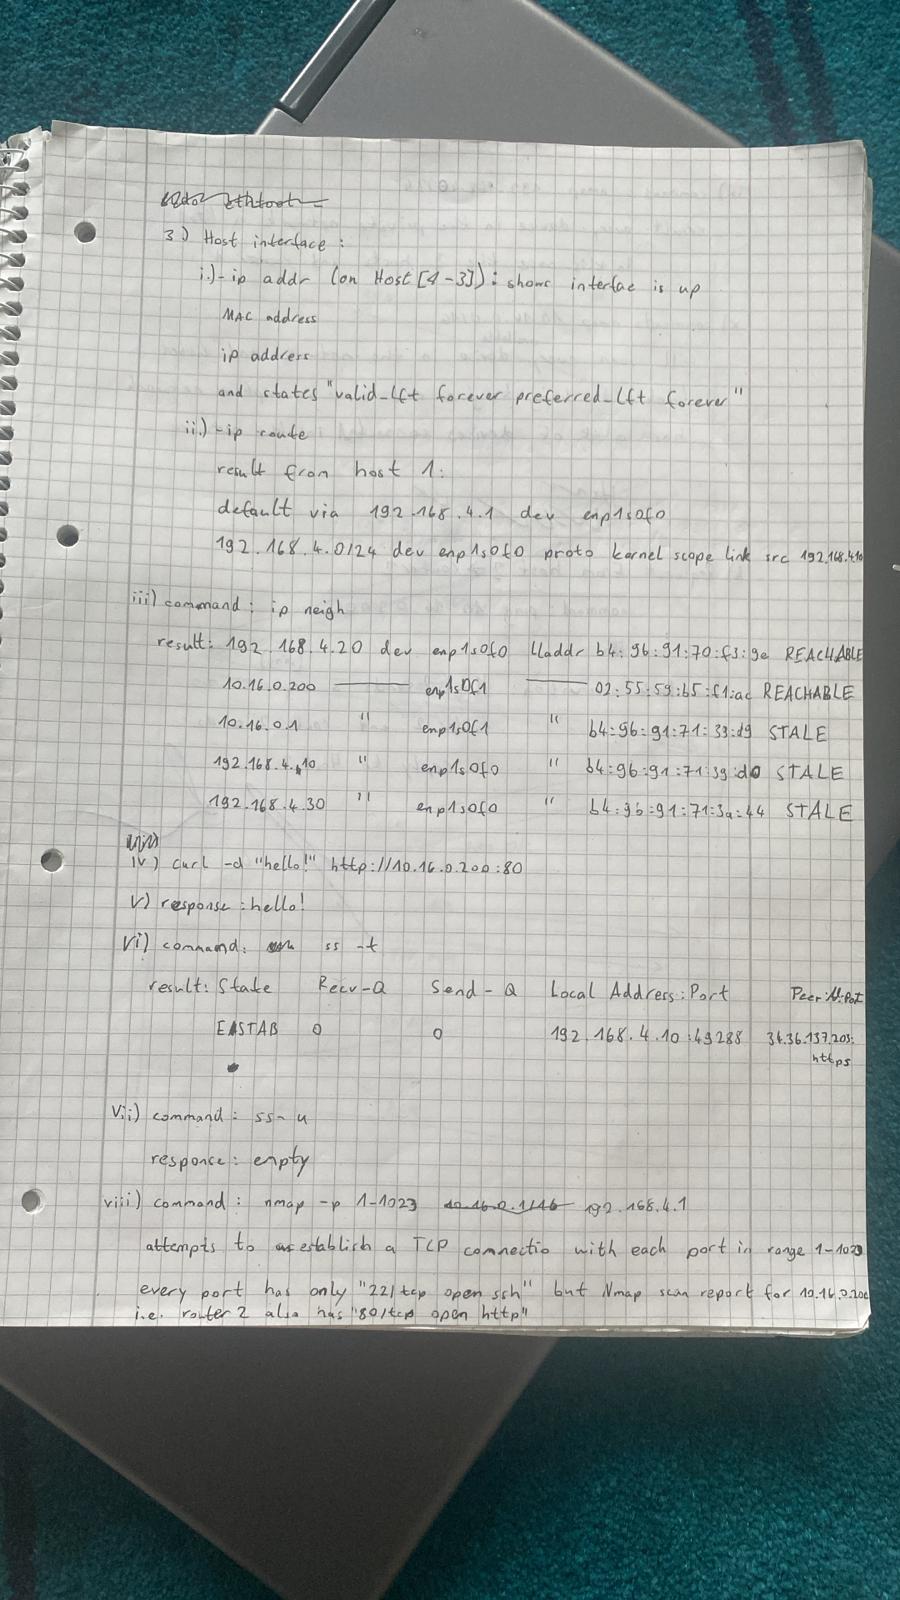 3) Host interface :
i.)- ip addr (on Host [1-3]) : shows interfae is up
MAC address
ip address
and states "valid_lft forever preferred_lft forever"
ii.) - ip route
result from host 1:
default via 192.168.4.1 dev enp1s0f0
192.168.4.0/24 dev enp1s0f0 proto kernel scope link src 192.168.4.10
iii) command : ip neigh
result: 192.168.4.20 dev enp1s0f0 lladdr b4:96:91:70:f3:9e REACHABLE
10.16.0.200 —— enp1s0f1 —— 02:55:59:b5:f1:ac REACHABLE
10.16.0.1 " enp1s0f1 " b4:96:91:71:39:d9 STALE
192.168.4.10 " enp1s0f0 " b4:96:91:71:39:d0 STALE
192.168.4.30 " enp1s0f0 " b4:96:91:71:3a:44 STALE
iv) curl -d "hello!" http://10.16.0.200:80
v) response : hello!
vi) command: ss -t
result: State Recv-Q Send-Q Local Address:Port Peer
EASTAB 0 0 192.168.4.10:49288 34.36.137.203:
https
vii) command : ss- u
responce : empty
viii) command : nmap -p 1-1023 10.16.0.1/16 192.168.4.1
attempts to establish a TCP connectio with each port in range 1-1023
every port has only "22/tcp open ssh" but Nmap scan report for 10.16.0.200
i.e. router 2 also has "80/tcp open http"